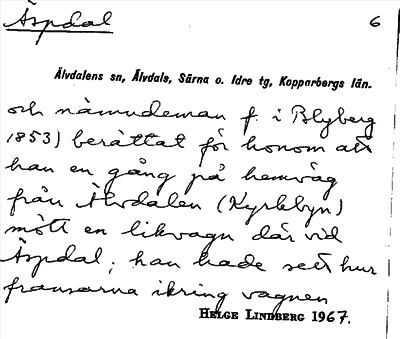 Äspdal
6
Älvdalens sn, Älvdals, Särna o. Idre tg, Kopparbergs län.
och nämndeman f. i Blyberg
1853) berättat för honom att
han en gång på hemväg
från Älvdalen (Kyrkbyn)
mött en likvagn där vid
Äspdal; han hade sett hur
fransarna ikring vagnen
HELGE LINDBERG 1967.